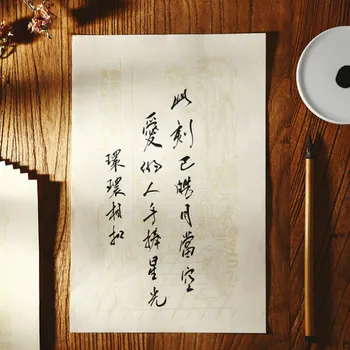 此刻已皓月當空
愛的人手捧星光
環環相扣